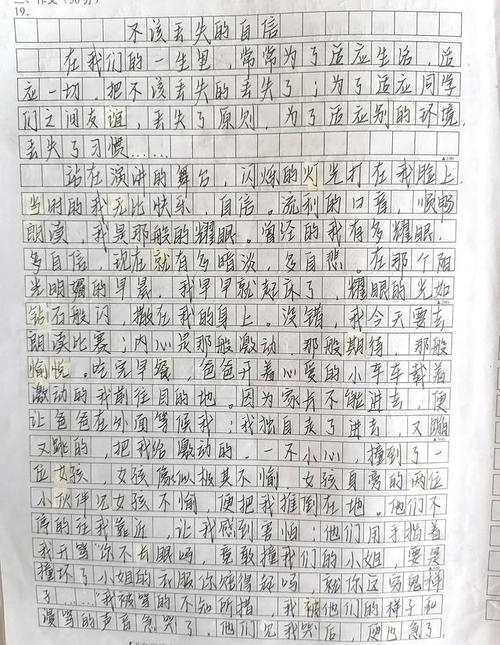 作文(50分)
19.
不该丢失的自信
在我们的一生里，常常为了适应生活，适
应一切，把不该丢失的丢失了；为了适应同学
们之间友谊，丢失了原则，为了适应别的环境，
丢失了习惯……
站在演讲的舞台，闪烁的灯光打在我脸上，
当时的我无比快乐，自信。流利的口音，顺畅
朗读，我是那般的耀眼。曾经的我有多耀眼，
多自信，现在就有多暗淡，多自悲。在那个阳
光明媚的早晨，我早早就起床了，耀眼的光如
钻石般闪，撒在我的身上。没错，我今天要去
朗读比赛；内心是那般激动，那般期待，那般
愉悦。吃完早餐，爸爸开着心爱的小车车载着
激动的我前往目的地。因为家长不能进去，便
让爸爸在外面等候我；我独自走了进去，又蹦
又跳的，把我给激动的，一不小心，撞到了一
位女孩，女孩像似极其不愉，女孩身旁的两位
小伙伴见女孩不愉，便把我推倒在地。他们不
停的往我靠近，让我感到害怕；他们用手指着
我开骂"你不长眼吗，竟敢撞我们的小姐，要是
撞坏了小姐的衣服你赔得起吗，就你这穷鬼样
子……"我被骂的不知所措，我被他们的样子和
谩骂的声音急哭了，他们见我哭后，便也急了，